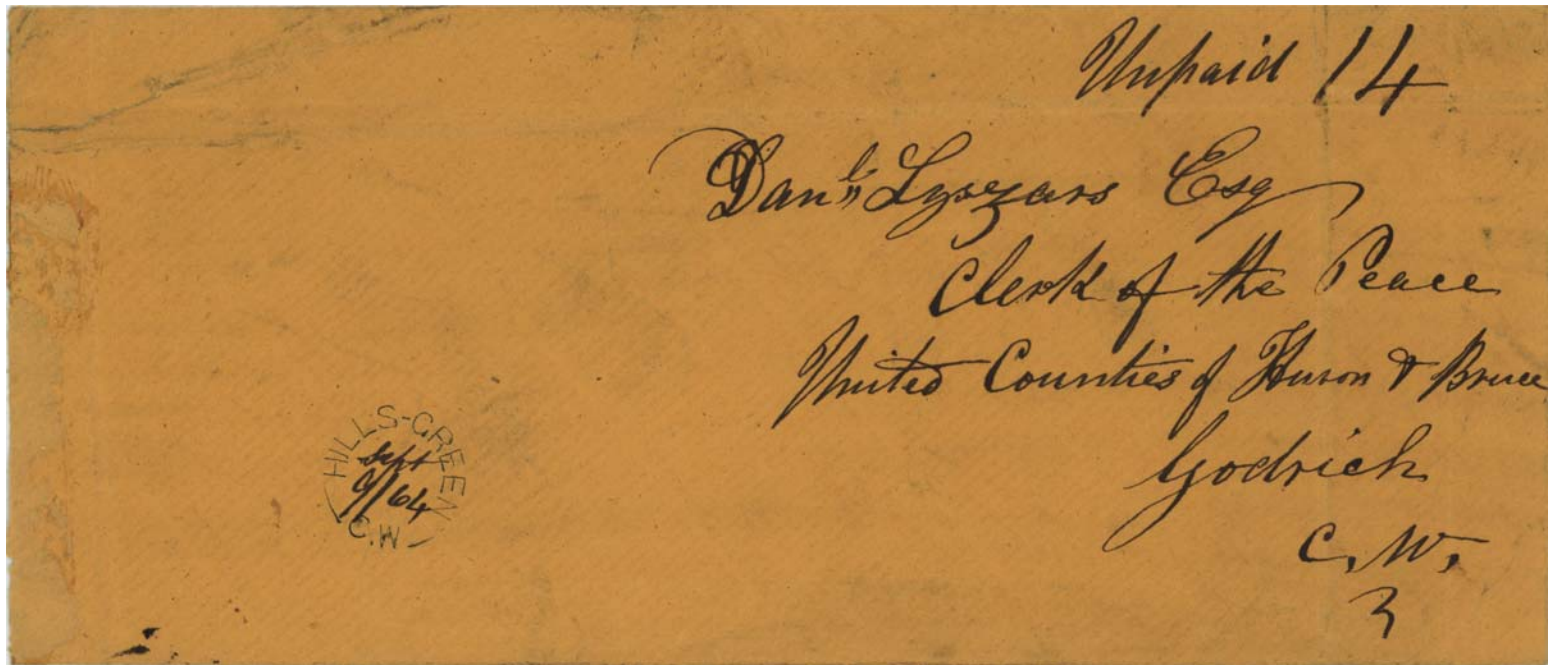 Unpaid 14
Danl Lyszars Esq
Clerk of the Peace
United Counties of Huron & Bruce
Godrich
C. W.
3
HILLS-GREEN
Sept
9/64
C.W